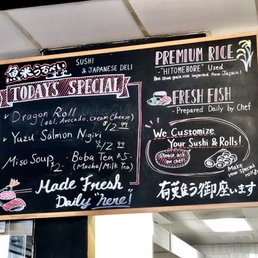 SUSHI
& JAPANESE DELI
TODAYS SPECIAL
Dragon Roll
(eel, Avocado, cream cheese)
$12.99
Yuzu Salmon Nigiri
$12.99
Miso Soup
$2.
Boba Tea $5.
(Matcha/Milk Tea)
Made Fresh
Daily "here!"
PREMIUM RICE
"HITOMEBORE" Used
FRESH FISH
- Prepared Daily by Chef
We Customize
Your Sushi & Rolls!
Please ask
the chef!
Make
your special
有難う御座います